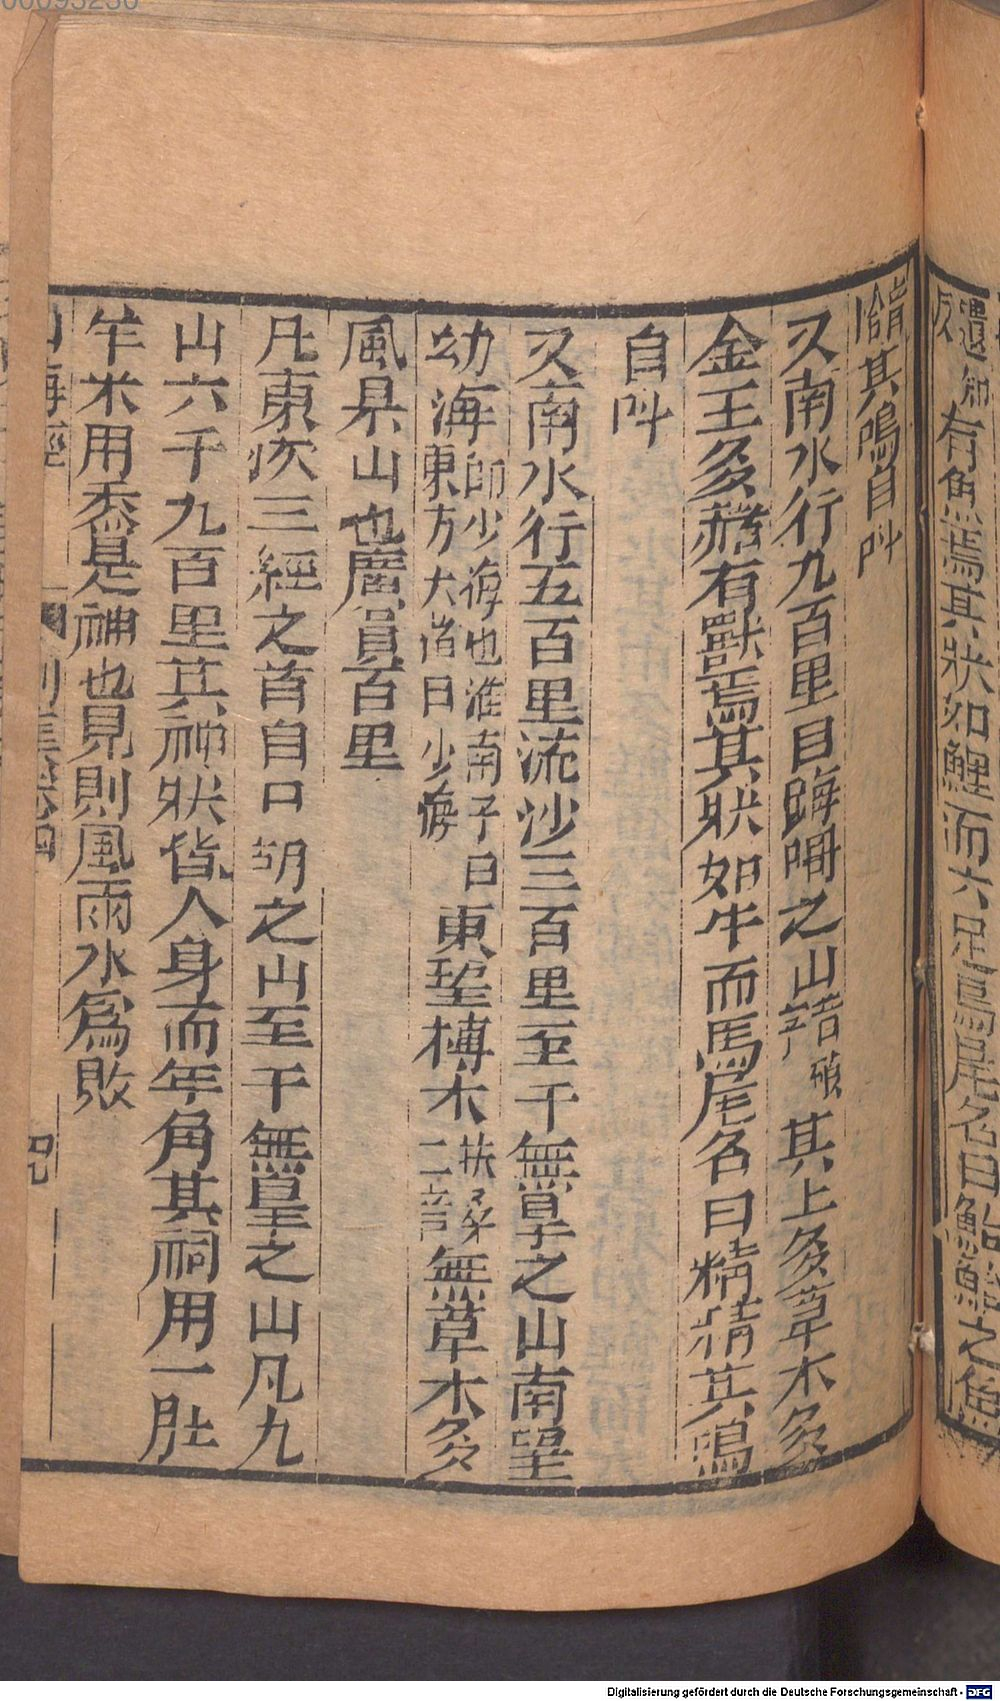 00093236
遺知
反
有魚焉其狀如鯉而六足鳥尾名曰鮯鮯之魚
其鳴自叫
又南水行九百里曰踇隅之山
其上多草木多
金玉多赭有獸焉其狀如牛而馬尾名曰精精其鳴
自叫
又南水行五百里流沙三百里至于無皐之山南望
幼海
即少海也淮南子曰
東方大渚曰少海
東望榑木
扶桑
二音
無草木多
風是山也廣員百里
凡東次三經之首自尸胡之山至于無皐之山凡九
山六千九百里其神狀皆人身而羊角其祠用一牡
羊米用黍是神也見則風雨水爲敗
山海經
卷四
四
Digitalisierung gefördert durch die Deutsche Forschungsgemeinschaft - DFG